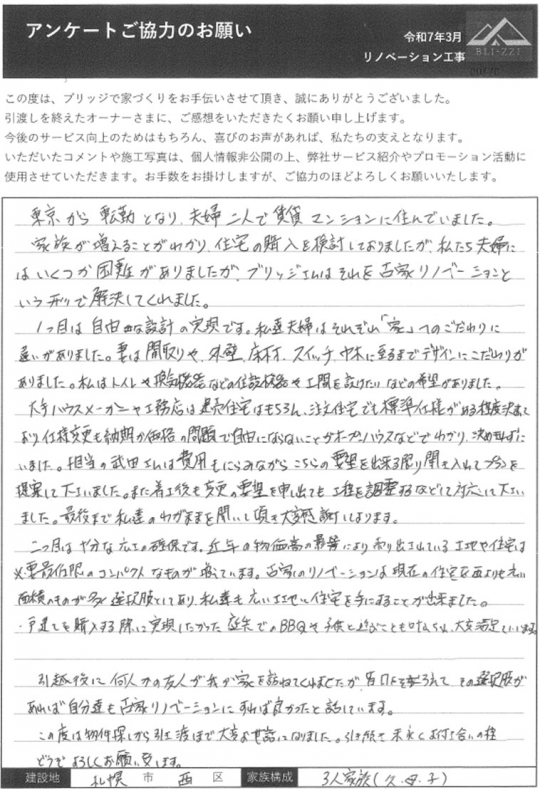 アンケートご協力のお願い
令和7年3月
リノベーション工事
BLI-ZZI
この度は、ブリッジで家づくりをお手伝いさせて頂き、誠にありがとうございました。
引渡しを終えたオーナーさまに、ご感想をいただきたくお願い申し上げます。
今後のサービス向上のためはもちろん、喜びのお声があれば、私たちの支えとなります。
いただいたコメントや施工写真は、個人情報非公開の上、弊社サービス紹介やプロモーション活動に
使用させていただきます。お手数をお掛けしますが、ご協力のほどよろしくお願いいたします。
東京から転勤となり、夫婦二人で賃貸マンションに住んでいました。
家族が増えることがわかり、住宅の購入を検討しておりましたが、私たち夫婦に
はいくつか困難がありましたが、ブリッジさんはそれを古家リノベーションと
いう形で解決してくれました。
1つ目は自由な設計の実現です。私達夫婦はそれぞれ「家」へのこだわりに
違いがありました。妻は間取りや、外壁、床材、スイッチ、巾木に至るまでデザインにこだわりが
ありました。私はトイレや換気機器などの住設機器や土間を設けたいなどの希望がありました。
大手ハウスメーカーや工務店は建売住宅はもちろん、注文住宅でも標準仕様がある程度決まって
おり、仕様変更も納期や価格の問題で自由にならないことがオープンハウスなどでわかり、決めれずに
いました。担当の武田さんは費用もにらみながらこちらの要望を出来る限り聞き入れてプランを
提案して下さいました。また着工後も変更の要望を申し出ても工程を調整するなどして対応して下さい
ました。最後まで私達のわがままを聞いて頂き大変感謝しております。
二つ目は十分な広さの確保です。近年の物価高の影響により売り出されている土地や住宅は
必要最低限のコンパクトなものが増えています。古家のリノベーションは現在の住宅を面よりも広い
面積のものが多く選択肢としてあり、私達も広い土地と住宅を手にすることが出来ました。
戸建てを購入する際に実現したかった庭先でのBBQや子供と遊ぶことも叶えられ、大変満足しています。
引越後に何人かの友人が我が家を訪ねてくれましたが皆口を揃えてその選択肢が
あれば自分達も古家リノベーションにすれば良かったと話しています。
この度は物件探しから引き渡しまで大変お世話になりました。引き続き末永くお付き合いの程
どうぞよろしくお願い致します。
建設地 札幌市西区 家族構成 3人家族(父・母・子)